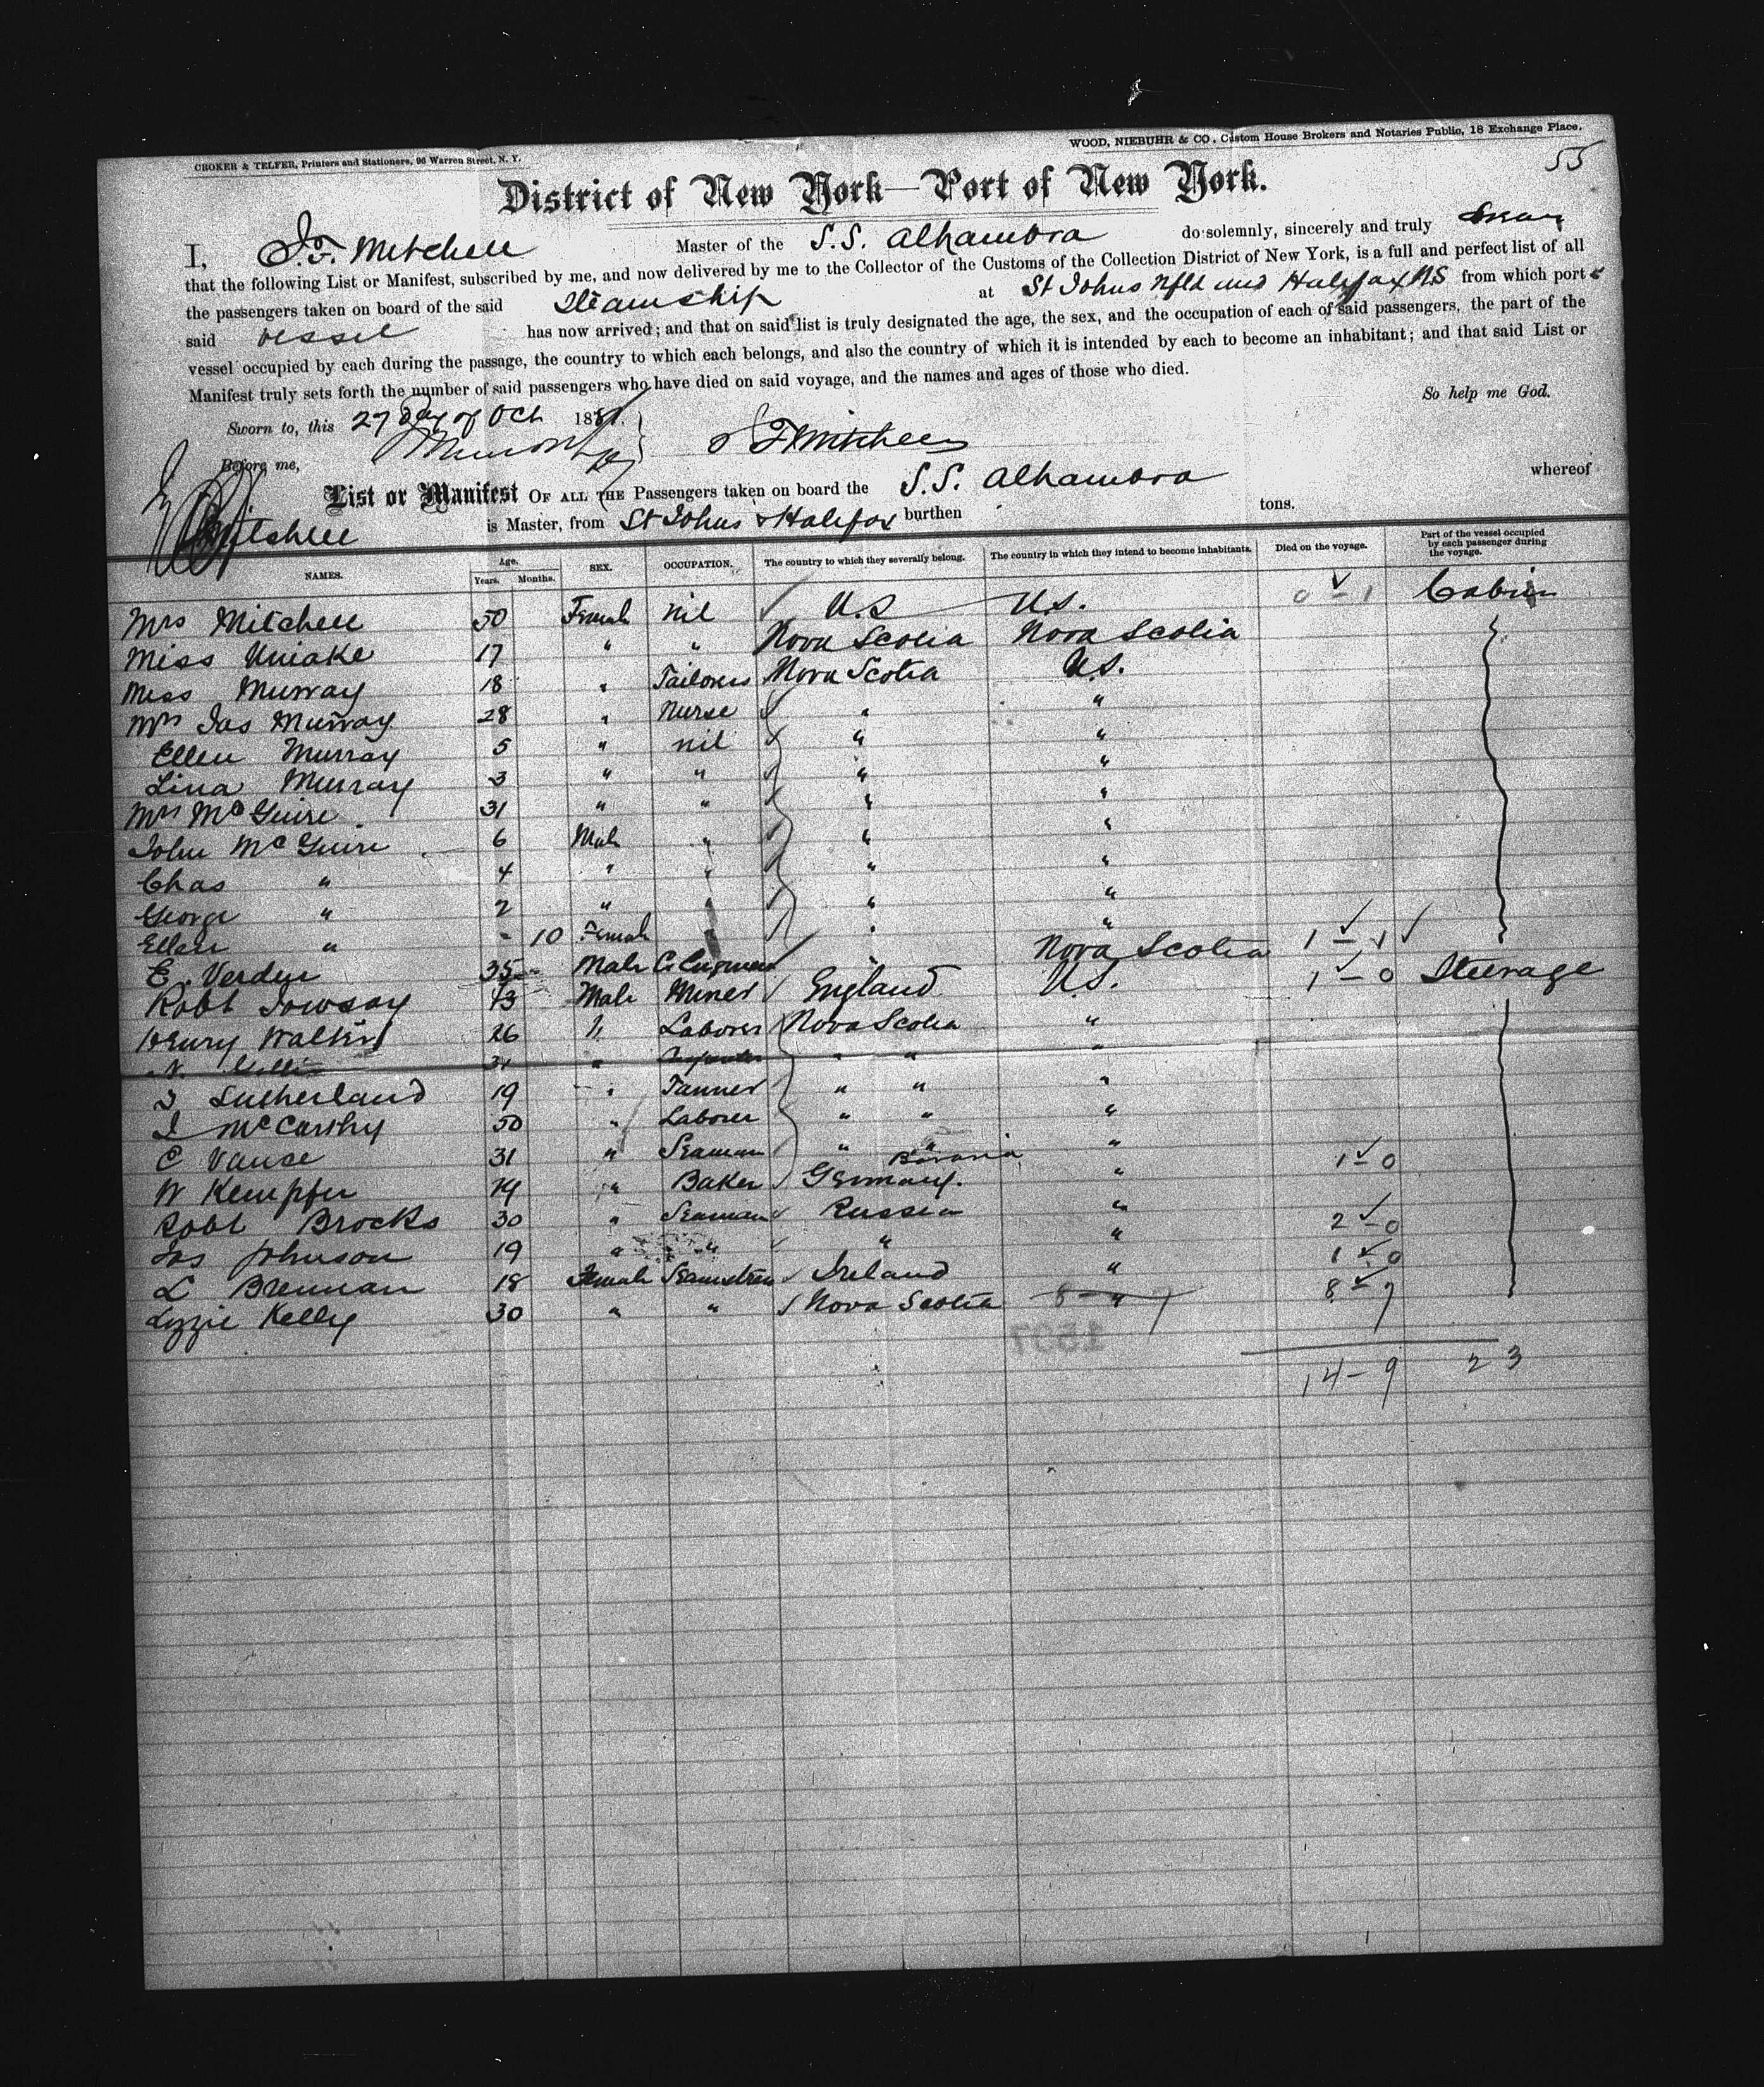 CROKER & TELFER, Printers and Stationers, 96 Warren Street, N. Y.
WOOD, NIEBUHR & CO., Custom House Brokers and Notaries Public, 18 Exchange Place.
55
District of New York—Port of New York.
I, J. F. Mitchell Master of the S.S. Alhambra do solemnly, sincerely and truly Swear
that the following List or Manifest, subscribed by me, and now delivered by me to the Collector of the Customs of the Collection District of New York, is a full and perfect list of all
the passengers taken on board of the said Steamship at St Johns Nfld and Halifax NS from which port s
said vessel has now arrived; and that on said list is truly designated the age, the sex, and the occupation of each of said passengers, the part of the
vessel occupied by each during the passage, the country to which each belongs, and also the country of which it is intended by each to become an inhabitant; and that said List or
Manifest truly sets forth the number of said passengers who have died on said voyage, and the names and ages of those who died.
So help me God.
Sworn to, this 27 Day of Oct 1881.
J F Mitchell
Before me,
List or Manifest OF ALL THE Passengers taken on board the S.S. Alhambra whereof
Mitchell is Master, from St Johns & Halifax burthen tons.
NAMES. Age. Years. Months. SEX. OCCUPATION. The country to which they severally belong. The country in which they intend to become inhabitants. Died on the voyage. Part of the vessel occupied by each passenger during the voyage.
Mrs Mitchell 50 Female nil U.S U.S. 0 - 1 Cabin
Miss Uniake 17 " " Nova Scotia Nova Scotia
Miss Murray 18 " Tailoress Nova Scotia U.S.
Mrs Jas Murray 28 " Nurse " "
Ellen Murray 5 " nil " "
Lina Murray 3 " " " "
Mrs McGuire 31 " " " "
John McGuire 6 Male " " "
Chas " 4 " " " "
George " 2 " " " "
Ellen " - 10 Female " "
E. Verdur 35 Male " Nova Scotia 1 - 1
Robt Towsay 43 Male Miner England U.S. 1 - 0 Steerage
Henry Walters 26 " Laborer Nova Scotia "
31 " " " "
J Sutherland 19 " Tanner " " "
J McCarthy 50 " Laborer " " "
C Vause 31 " Seaman " " "
W Kempfer 19 " Baker Germany. Bavaria " 1 - 0
Robt Brocks 30 " Seaman Russia "
Jas Johnson 19 " " " " 2 - 0
L Brennan 18 Female Seamstress Ireland " 1 - 0
Lizzie Kelly 30 " " Nova Scotia 8 " 7 8 - 7
1507
14 - 9 23